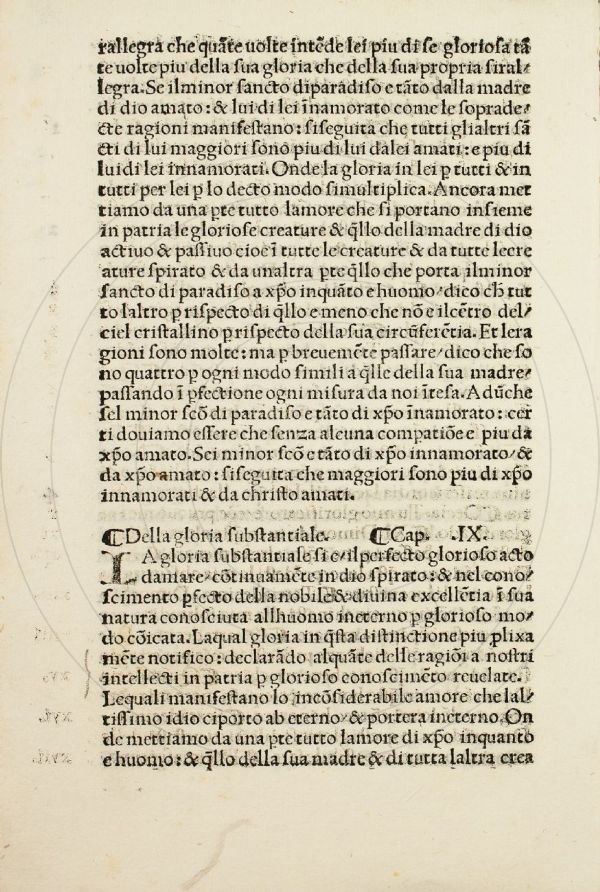 rallegra che quāte uolte intēde lei piu di se gloriosa tā
te uolte piu della sua gloria che della sua propria siral/
legra. Se il minor sancto diparadiso e tāto dalla madre
di dio amato: & lui di lei īnamorato come le soprade/
cte ragioni manifestano: siseguita che tutti glialtri sā
cti di lui maggiori sono piu di lui dalei amati: e piu di
luidi lei innamorati. Onde la gloria in lei ꝑ tutti & in
tutti per lei ꝑ lo decto modo simultiplica. Ancora met
tiamo da una ꝑte tutto lamore che si portano insieme
in patria le gloriose creature & q̄llo della madre di dio
actiuo & passiuo cioe ī tutte le creature & da tutte lecre
ature spirato & da unaltra ꝑte q̄llo che porta ilminor
sancto di paradiso a xp̄o inquāto e huomo/dico ch̄ tut
to laltro ꝑ rispecto di q̄llo e meno che nō e ilcētro del/
ciel cristallino ꝑ rispecto della sua circūferētia. Et lera
gioni sono molte: ma ꝑ breuemēte passare/dico che so
no quattro ꝑ ogni modo simili a q̄lle della sua madre/
passando ī ꝑfectione ogni misura da noi ītesa. Adūche
sel minor scō di paradiso e tāto di xp̄o īnamorato: cer
ti douiamo essere che senza alcuna compatiōe e piu da
xp̄o amato. Sei minor scō e tāto di xp̄o innamorato/&
da xp̄o amato: siseguita che maggiori sono piu di xp̄o
innamorati & da christo amati.
¶Della gloria substantiale. ¶Cap. .IX.
LA gloria substantiale si e/il perfecto glorioso acto
damare/cōtinuamēte in dio spirato: & nel cono/
scimento ꝑfecto della nobile & diuina excellētia ī sua
natura conosciuta allhuomo ineterno ꝑ glorioso mo/
do cōicata. Laqual gloria in q̄sta distinctione piu ꝓlixa
mēte notifico: declarādo alquāte delle ragiōi a nostri
intellecti in patria ꝑ glorioso conoscimēto reuelate.
Lequali manifestano lo incōsiderabile amore che lal/
tissimo idio ciporto ab eterno/& portera ineterno. On
de mettiamo da una ꝑte tutto lamore di xp̄o inquanto
e huomo: & q̄llo della sua madre & di tutta laltra crea